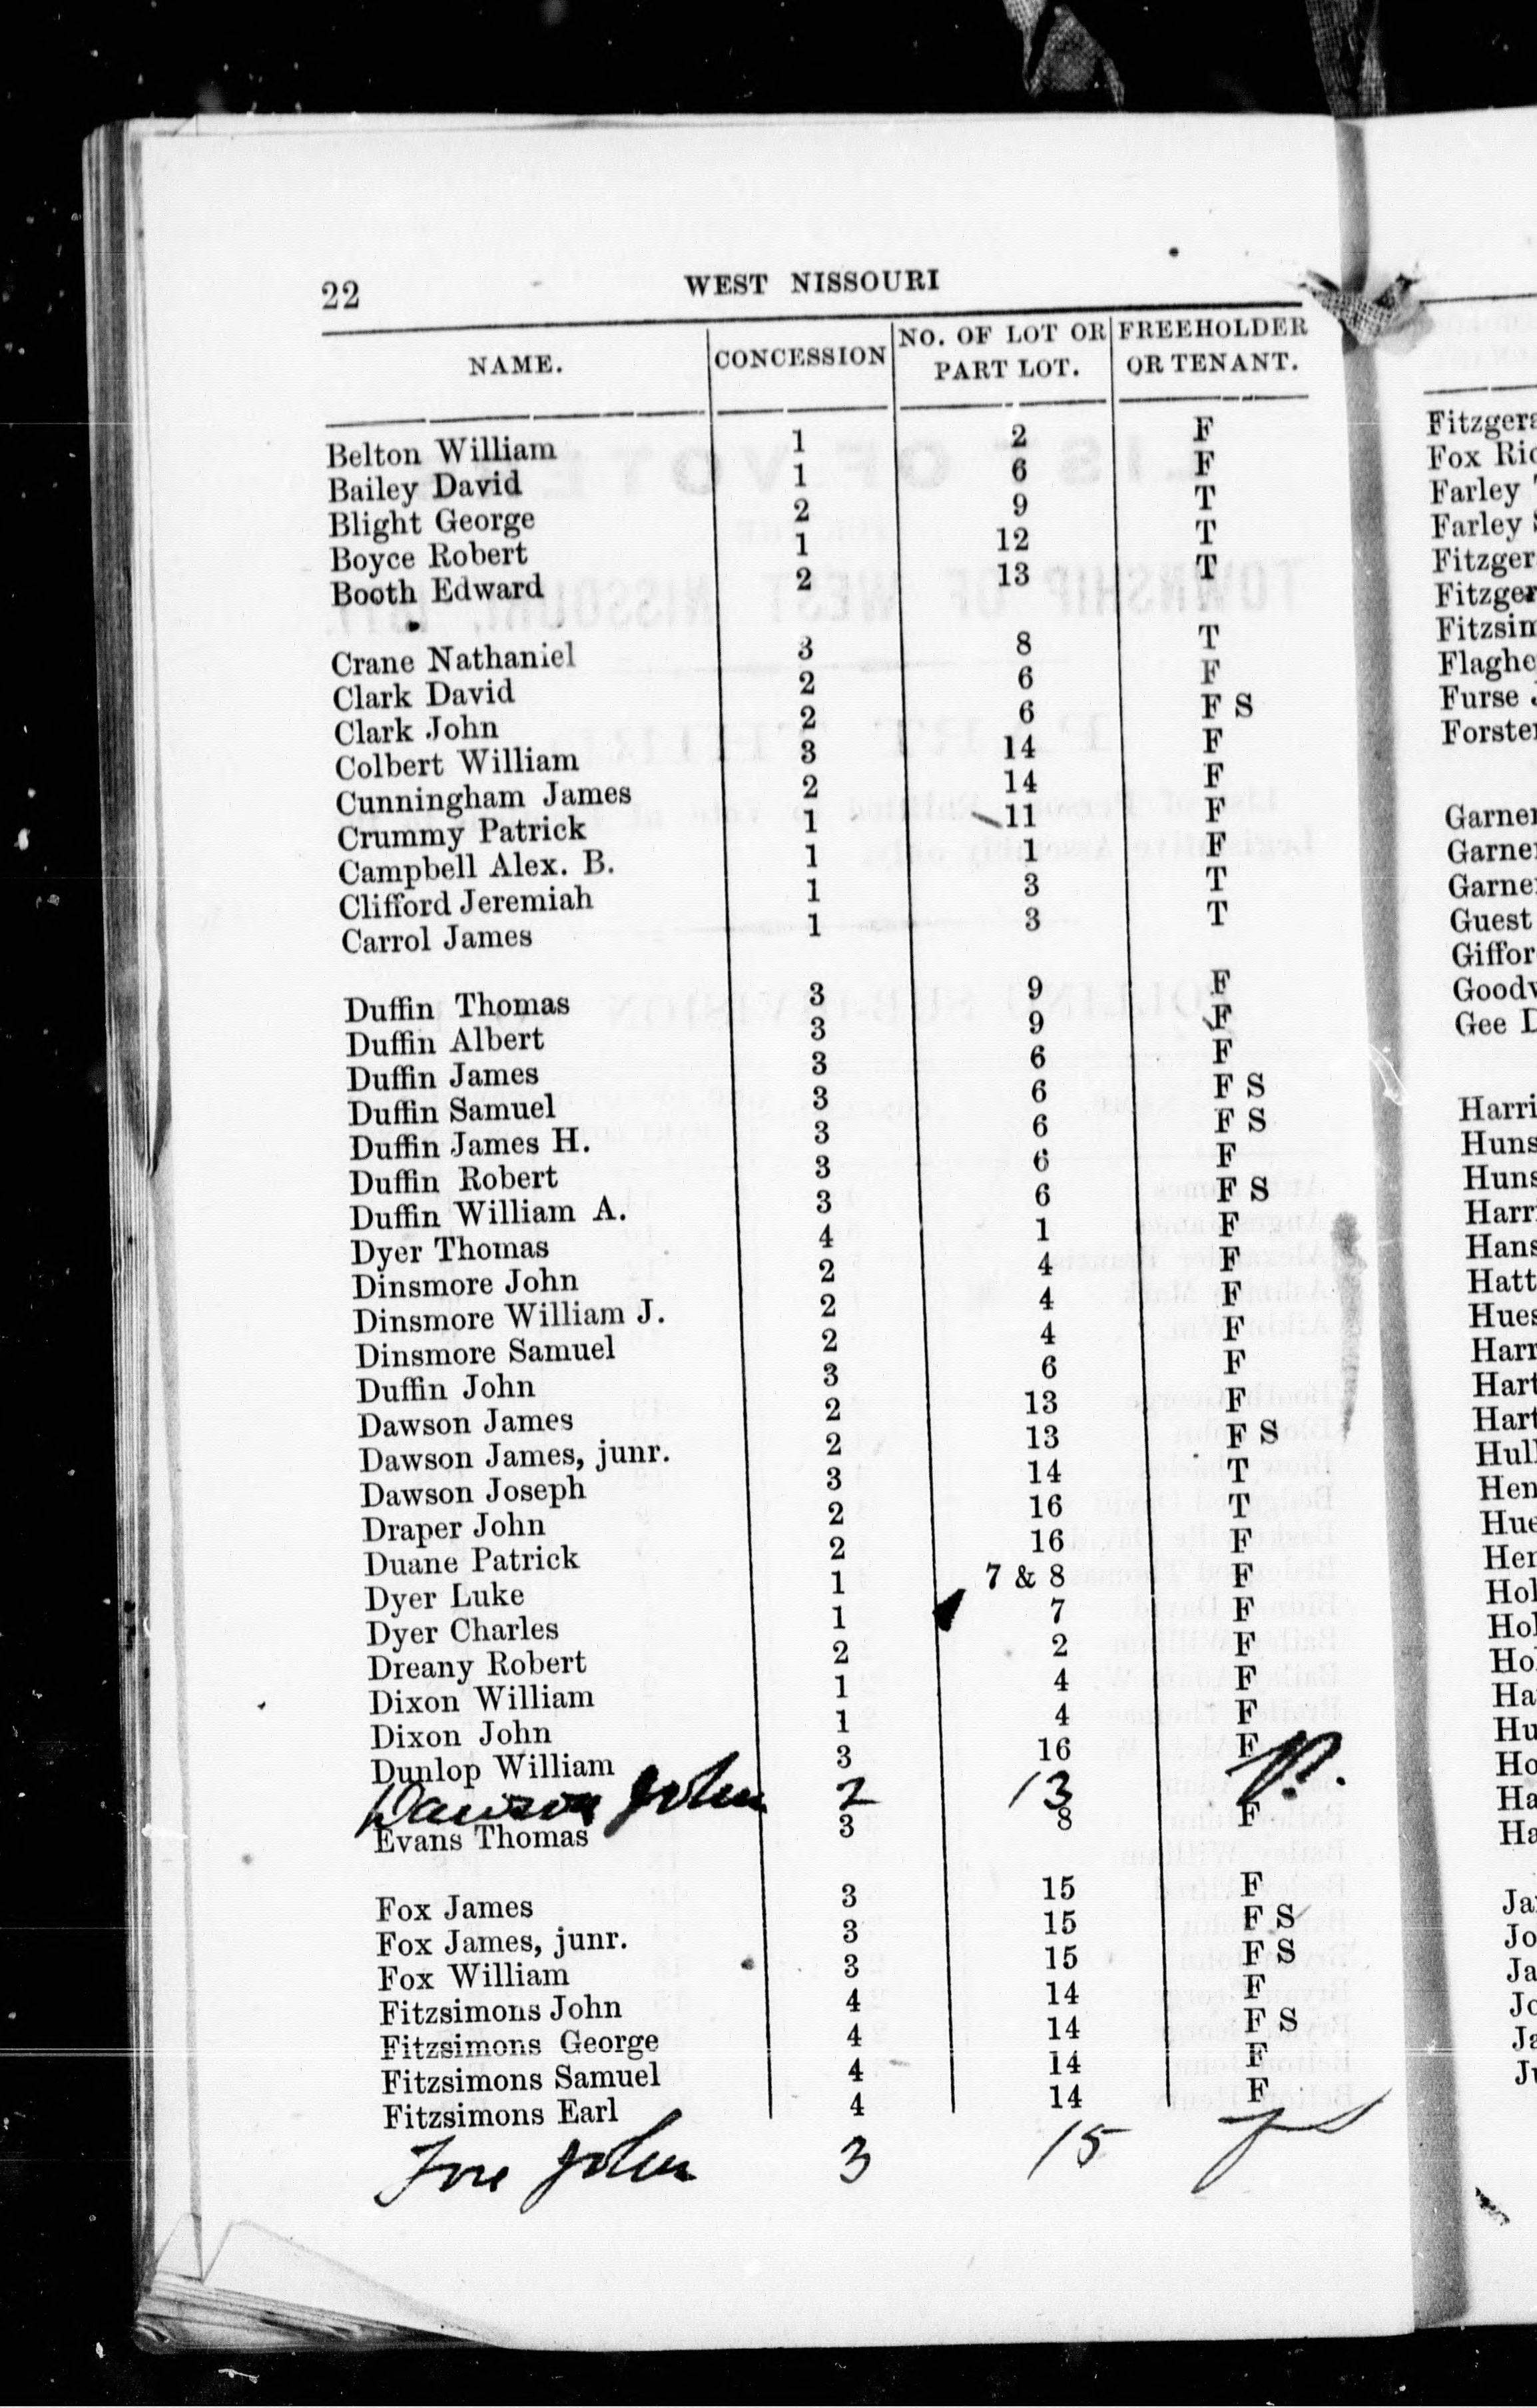 22 WEST NISSOURI
NAME. CONCESSION NO. OF LOT OR PART LOT. FREEHOLDER OR TENANT.
Belton William 1 2 F
Bailey David 1 6 F
Blight George 2 9 T
Boyce Robert 1 12 T
Booth Edward 2 13 T
Crane Nathaniel 3 8 T
Clark David 2 6 F
Clark John 2 6 F S
Colbert William 3 14 F
Cunningham James 2 14 F
Crummy Patrick 1 11 F
Campbell Alex. B. 1 1 F
Clifford Jeremiah 1 3 T
Carrol James 1 3 T
Duffin Thomas 3 9 F
Duffin Albert 3 9 F
Duffin James 3 6 F
Duffin Samuel 3 6 F S
Duffin James H. 3 6 F S
Duffin Robert 3 6 F
Duffin William A. 3 6 F S
Dyer Thomas 4 1 F
Dinsmore John 2 4 F
Dinsmore William J. 2 4 F
Dinsmore Samuel 2 4 F
Duffin John 3 6 F
Dawson James 2 13 F
Dawson James, junr. 2 13 F S
Dawson Joseph 3 14 T
Draper John 2 16 T
Duane Patrick 2 16 F
Dyer Luke 1 7 & 8 F
Dyer Charles 1 7 F
Dreany Robert 2 2 F
Dixon William 1 4 F
Dixon John 1 4 F
Dunlop William 3 16 F
Dawson John 2 13
Evans Thomas 3 8 F
Fox James 3 15 F
Fox James, junr. 3 15 F S
Fox William 3 15 F S
Fitzsimons John 4 14 F
Fitzsimons George 4 14 F S
Fitzsimons Samuel 4 14 F
Fitzsimons Earl 4 14 F
John 3 15
Fox
Farley
Farley
Furse
Guest
Gee